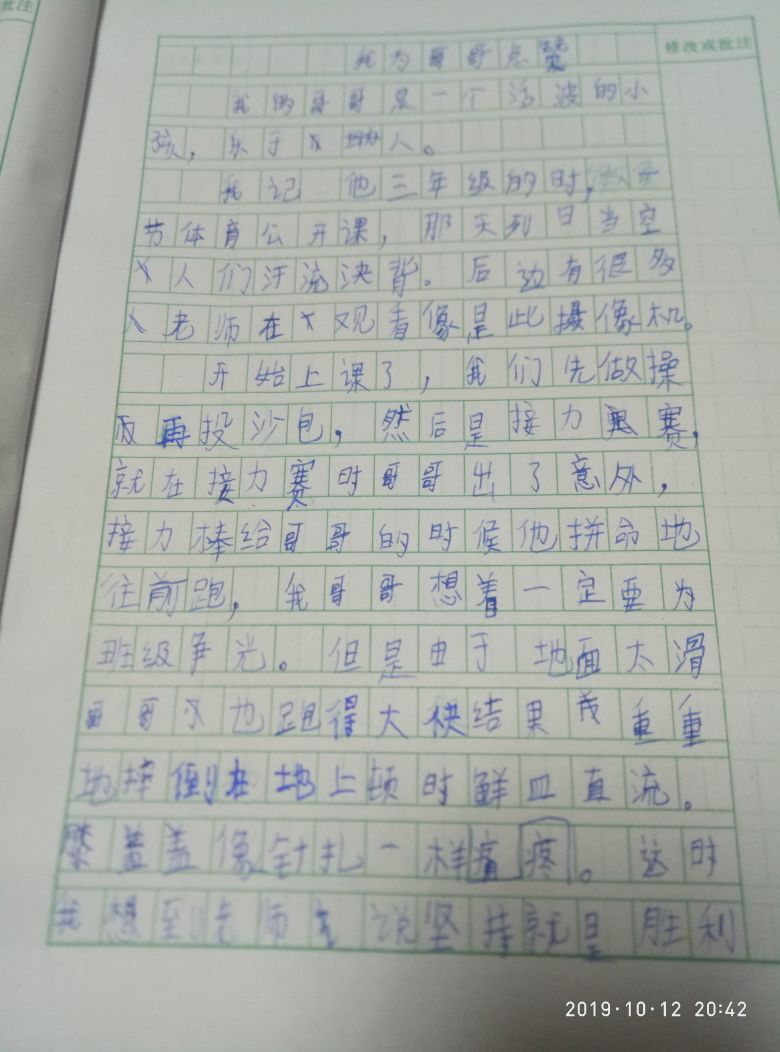 批注
修改或批注
我为哥哥点赞
我的哥哥是一个活波的小
孩，乐于人。
我记 他三年级的时，
节体育公开课，那天列日当空
人们汗流决背。后边有很多
老师在观看像是此摄像机。
开始上课了，我们先做操
再投沙包，然后是接力赛，
就在接力赛时哥哥出了意外，
接力棒给哥哥的时候他拼命地
往前跑，我哥哥想着一定要为
班级争光。但是由于地面太滑
哥哥也跑得太快结果重重
地摔倒在地上顿时鲜血直流。
膝盖盖像针扎一样疼。这时
我想到老师说坚持就是胜利
2019·10·12 20:42